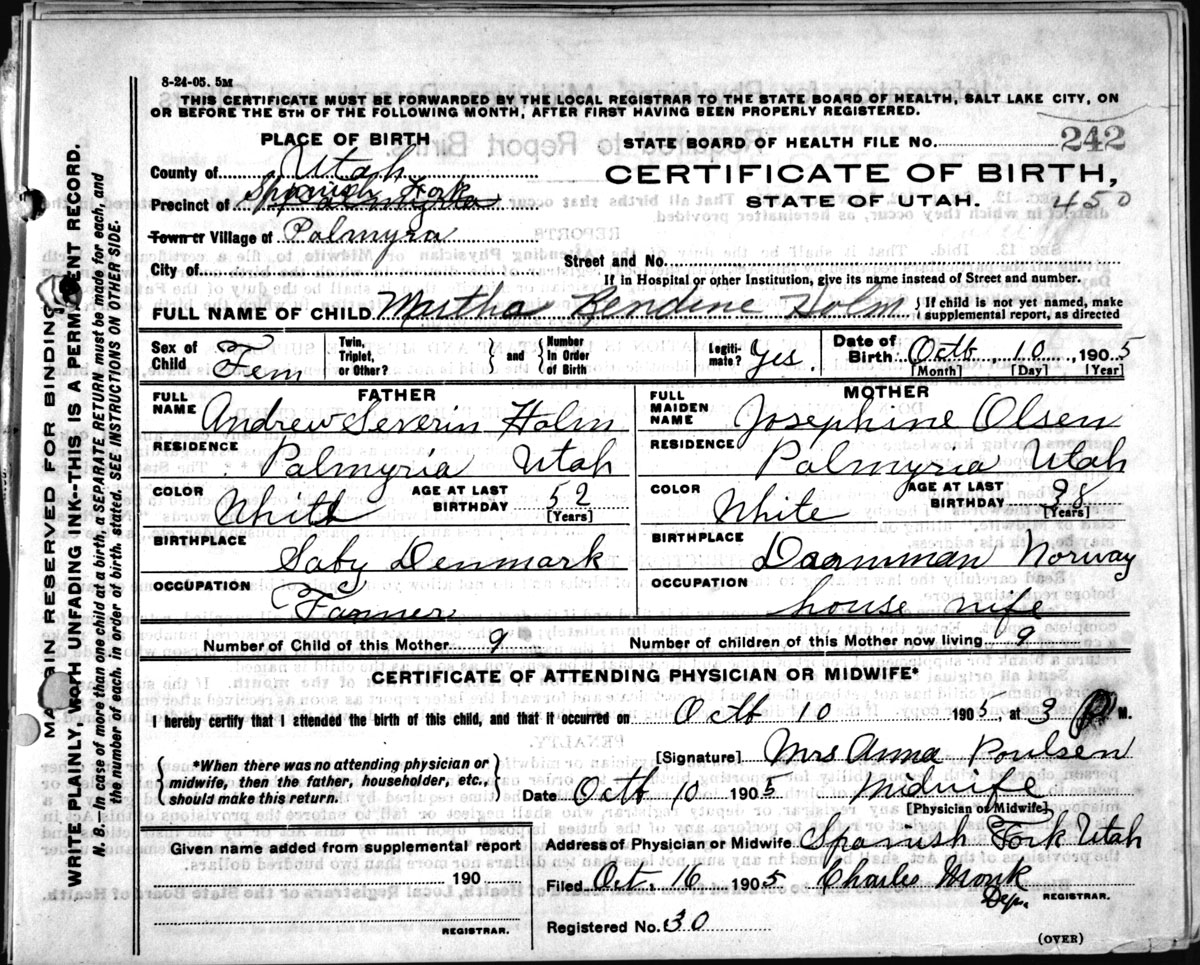 8-24-05. 5M
THIS CERTIFICATE MUST BE FORWARDED BY THE LOCAL REGISTRAR TO THE STATE BOARD OF HEALTH, SALT LAKE CITY, ON
OR BEFORE THE 5TH OF THE FOLLOWING MONTH, AFTER FIRST HAVING BEEN PROPERLY REGISTERED.
PLACE OF BIRTH
STATE BOARD OF HEALTH FILE NO. 242
County of Utah
CERTIFICATE OF BIRTH,
Precinct of Spanish Fork
STATE OF UTAH. 450
Town or Village of Palmyra
City of
Street and No.
If in Hospital or other Institution, give its name instead of Street and number.
FULL NAME OF CHILD Martha Kendine Holm { If child is not yet named, make
supplemental report, as directed
Sex of Child Fem Twin, Triplet, or Other? } and { Number In Order of Birth Legiti- mate? Yes. Date of Birth Octb 10, 1905
[Month] [Day] [Year]
FATHER
MOTHER
FULL NAME Andrew Severin Holm
FULL MAIDEN NAME Josephine Olsen
RESIDENCE Palmyria Utah
RESIDENCE Palmyria Utah
COLOR White AGE AT LAST BIRTHDAY 52 [Years]
COLOR White AGE AT LAST BIRTHDAY 38 [Years]
BIRTHPLACE Saby Denmark
BIRTHPLACE Norway
OCCUPATION Farmer
OCCUPATION house wife
Number of Child of this Mother 9
Number of children of this Mother now living 9
CERTIFICATE OF ATTENDING PHYSICIAN OR MIDWIFE*
I hereby certify that I attended the birth of this child, and that it occurred on Octb 10 1905, at 3 P M.
{ *When there was no attending physician or midwife, then the father, householder, etc., should make this return. }
[Signature] Mrs Anna Poulsen
Date Octb 10 1905 Midwife
[Physician or Midwife]
Given name added from supplemental report
190
REGISTRAR.
Address of Physician or Midwife Spanish Fork Utah
Filed Oct. 16 1905 Charles Monk
Dep. REGISTRAR.
Registered No. 30
(OVER)
MARGIN RESERVED FOR BINDING
WRITE PLAINLY, WITH UNFADING INK--THIS IS A PERMANENT RECORD.
N. B.--In case of more than one child at a birth, a SEPARATE RETURN must be made for each, and
the number of each, in order of birth, stated. SEE INSTRUCTIONS ON OTHER SIDE.